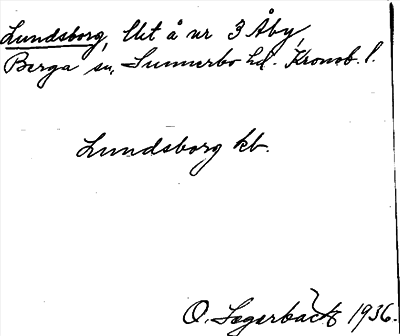 Lundsborg, lht å nr 3 Åby,
Berga sn, Sunnerbo hd. Kronob. l.
Lundsborg kb.
O. Segerbäck 1936.